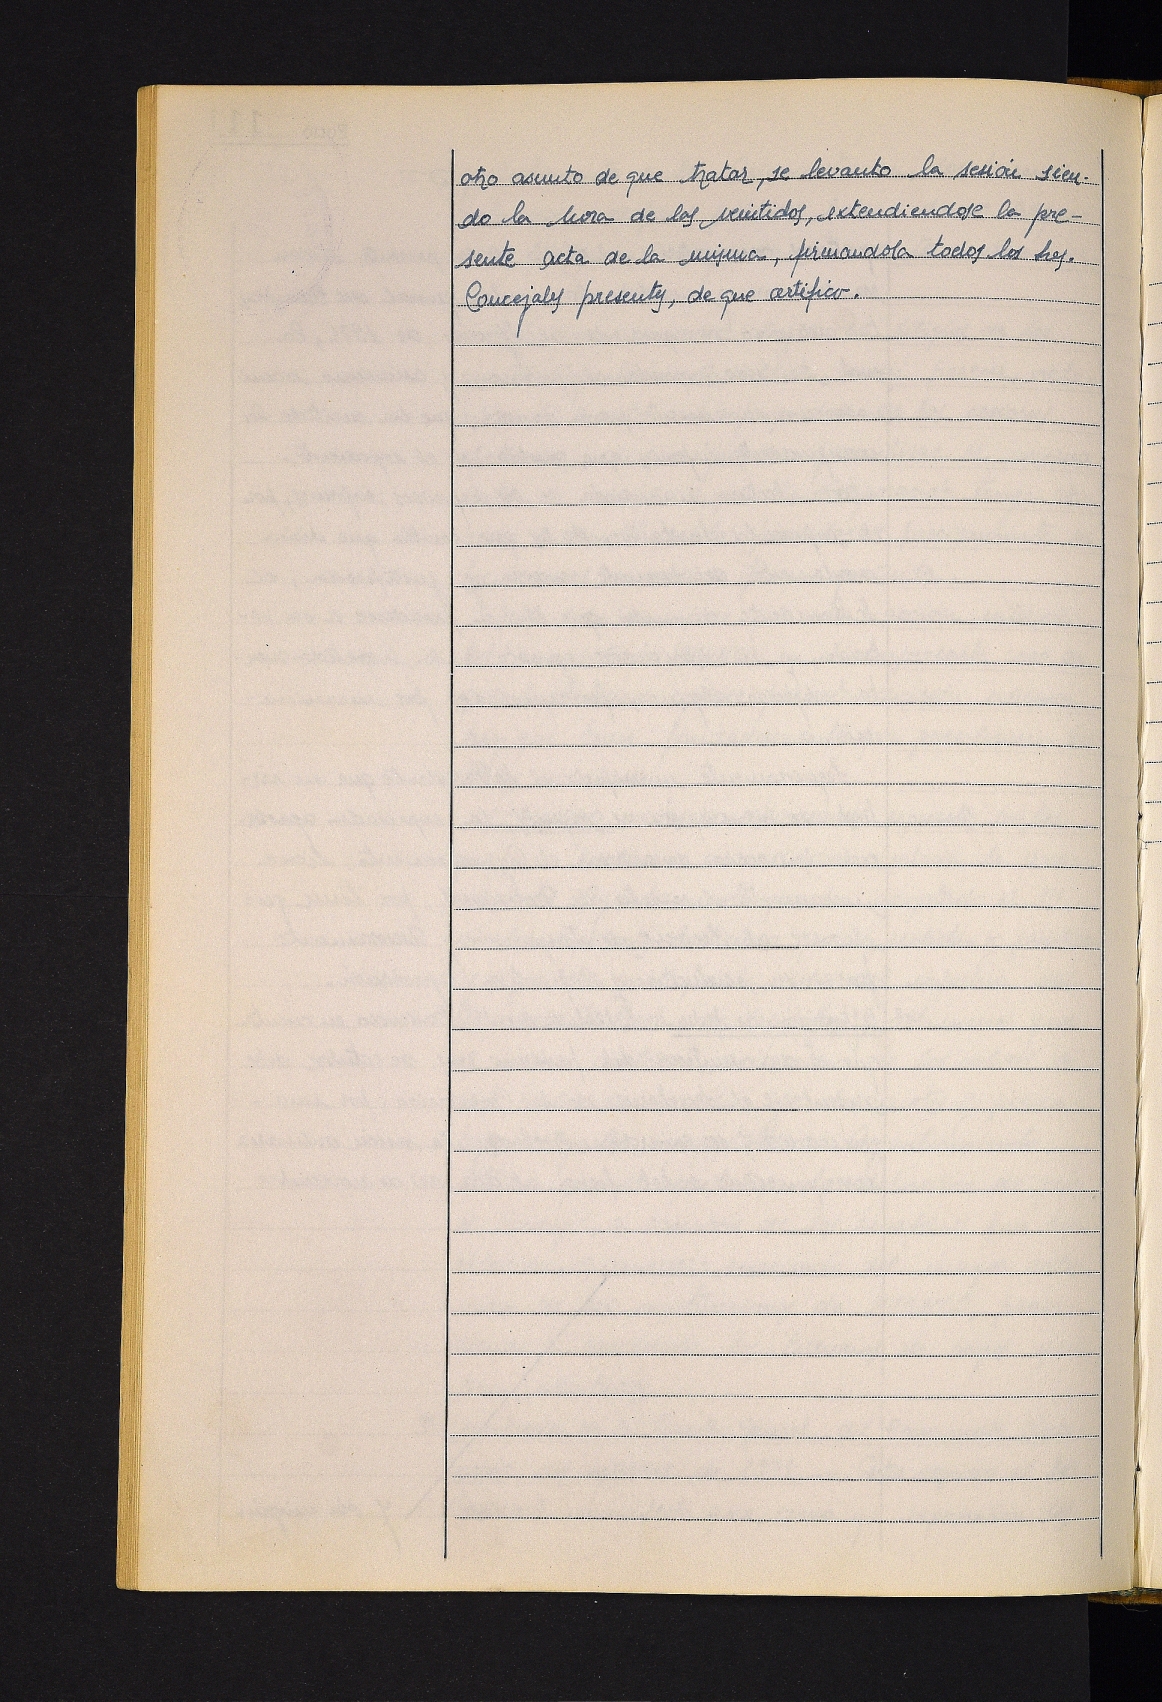 otro asunto de que tratar, se levanto la sesión sien-
do la hora de las veintidos, extendiendose la pre-
sente acta de la misma, firmandola todos los Sres.
Concejales presentes, de que certifico.